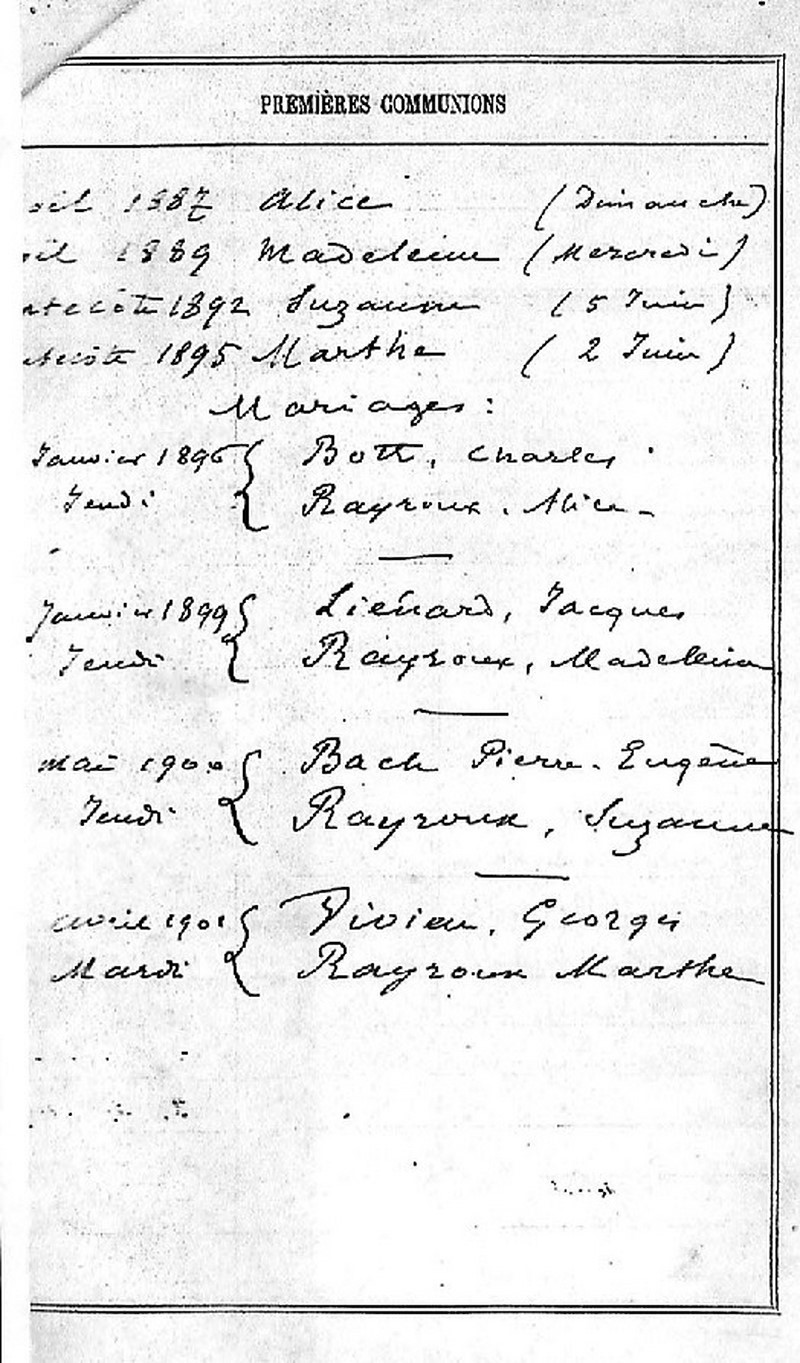 PREMIÈRES COMMUNIONS
1887 Alice (Dimanche)
1889 Madeleine (Mercredi)
1892 Suzanne (5 Juin)
1895 Marthe (2 Juin)
Mariages :
Janvier 1896 { Bott, Charles
Jeudi Rayroux, Alice
Janvier 1899 { Lienard, Jacques
Jeudi Rayroux, Madeleine
Mai 1900 { Bach Pierre-Eugène
Jeudi Rayroux, Suzanne
Avril 1901 { Vivien, Georges
Mardi Rayroux Marthe